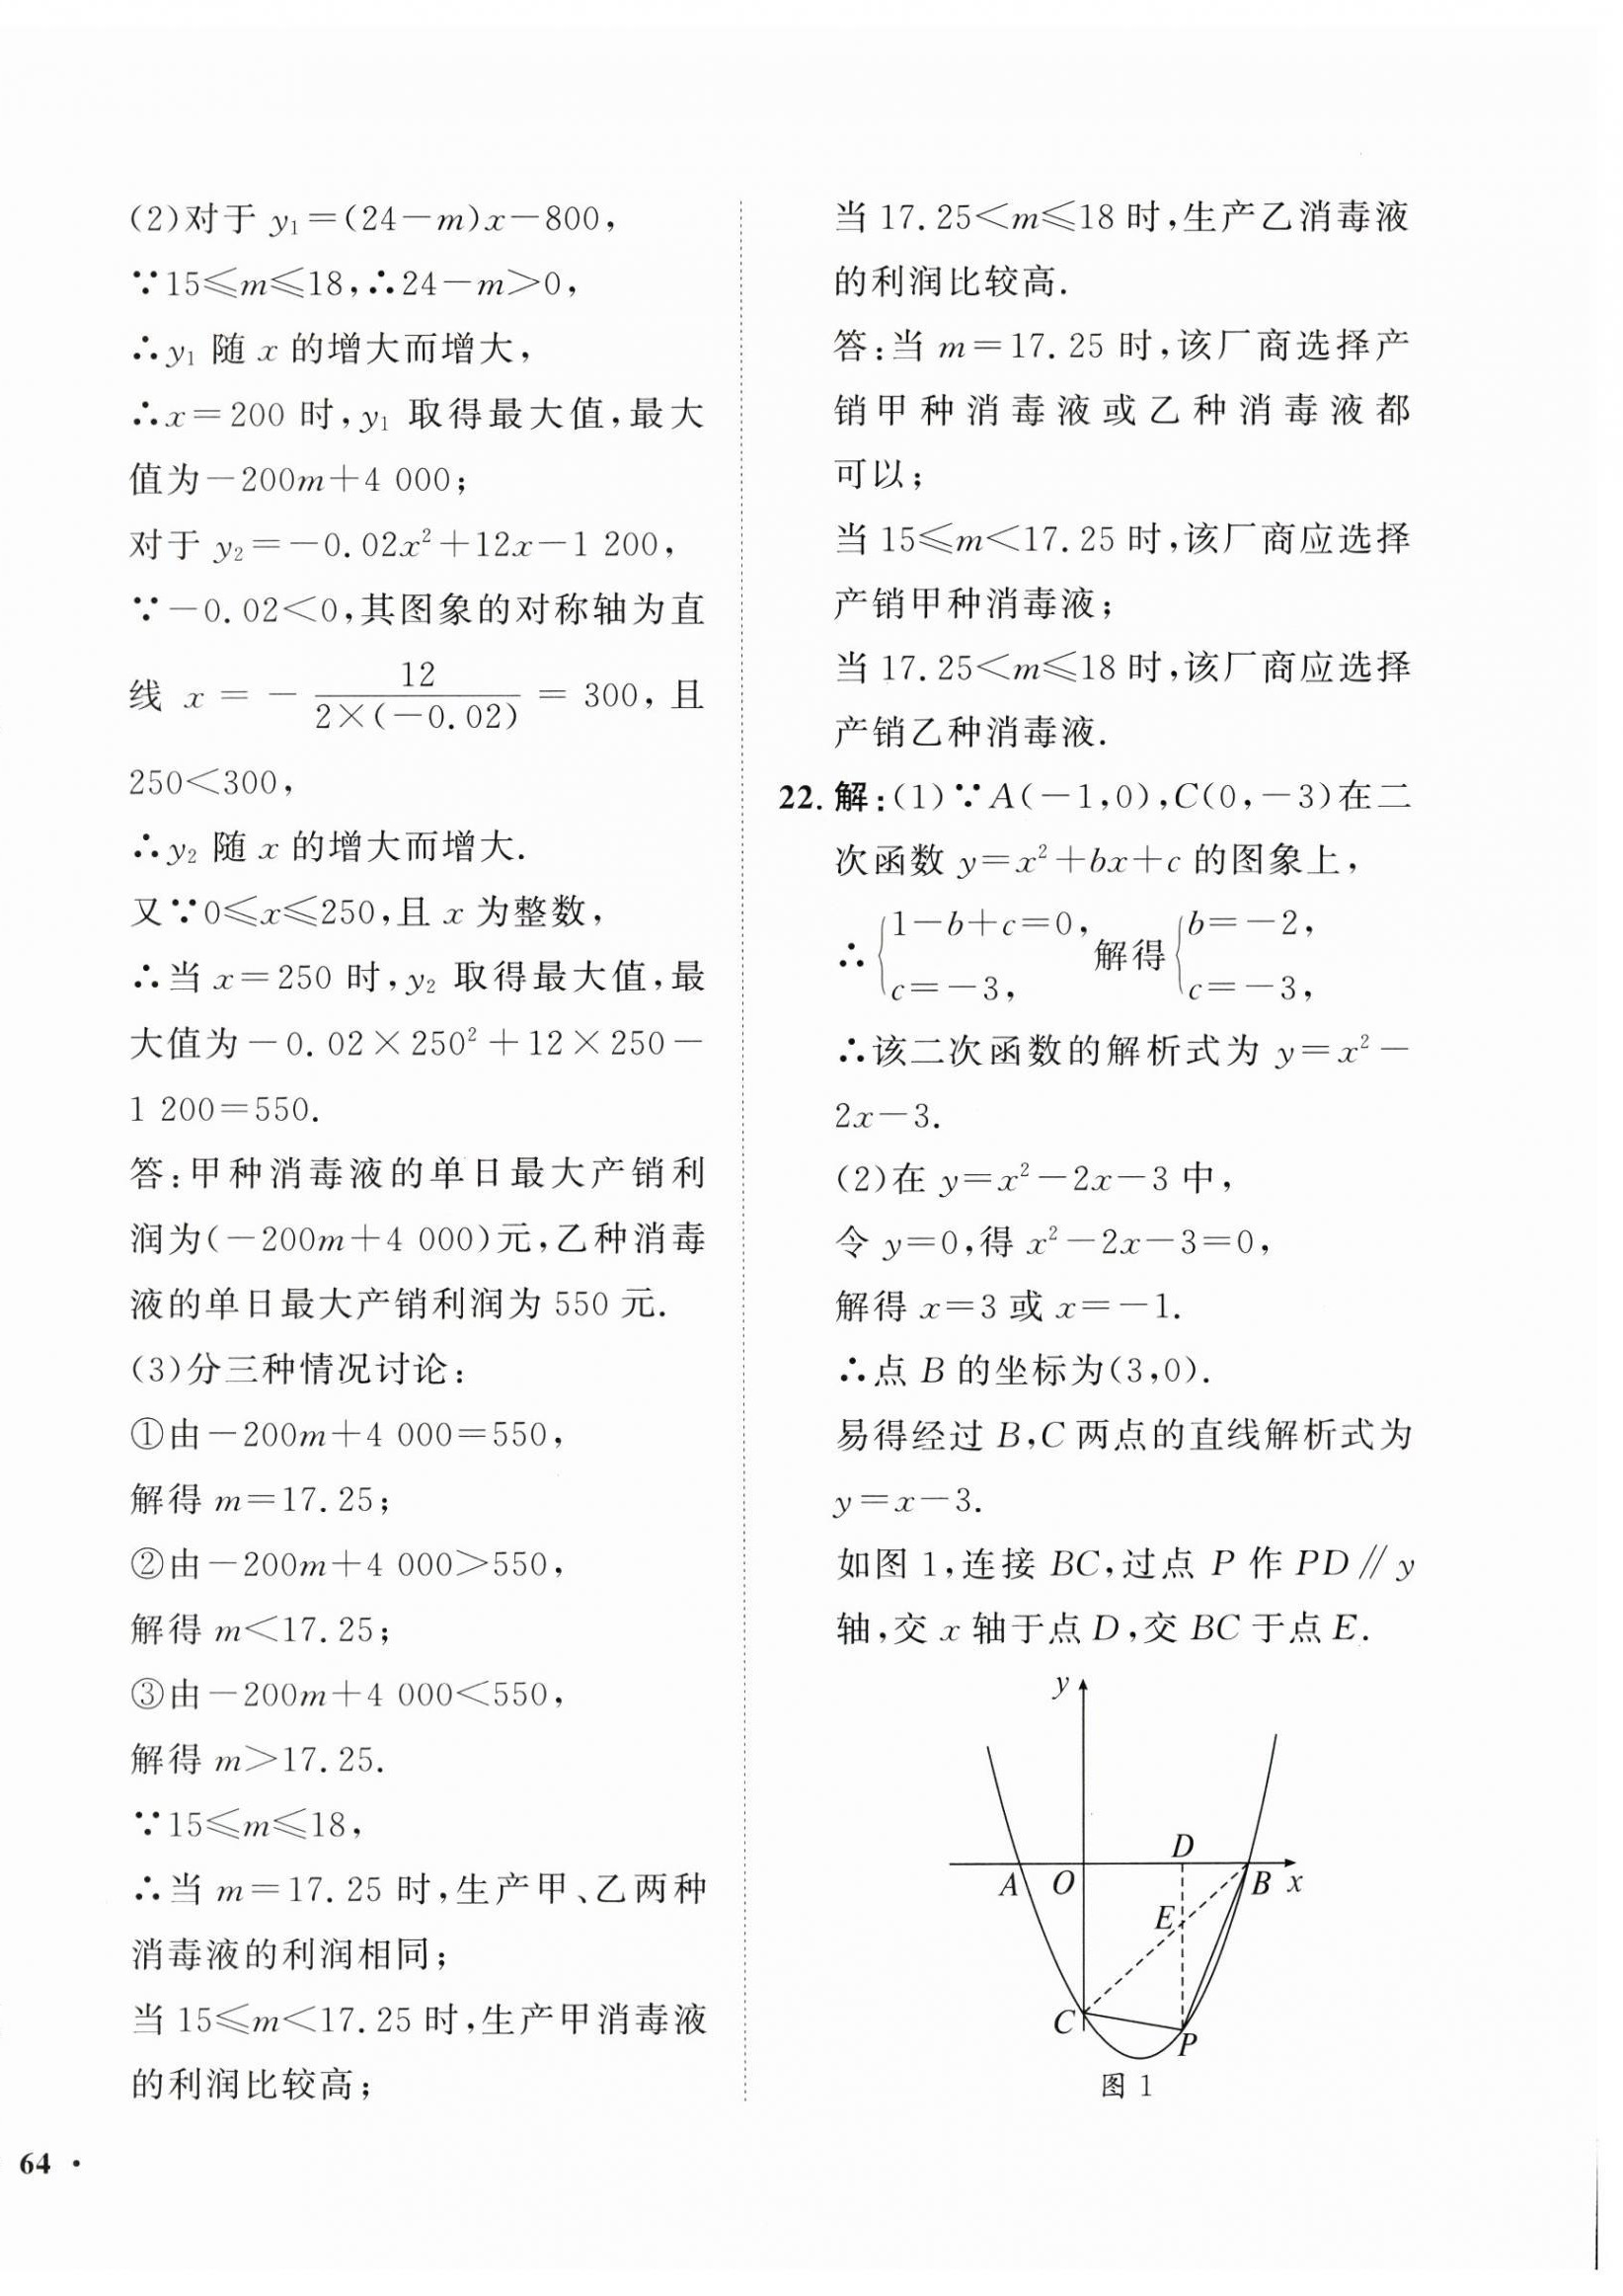 (2)对于 y₁=(24-m)x-800,
∵15≤m≤18,∴24-m>0,
∴y₁ 随 x 的增大而增大,
∴x=200 时,y₁ 取得最大值,最大
值为-200m+4 000;
对于 y₂=-0.02x²+12x-1 200,
∵-0.02<0,其图象的对称轴为直
线 x = - 12/(2×(-0.02)) = 300,且
250<300,
∴y₂ 随 x 的增大而增大.
又∵0≤x≤250,且 x 为整数,
∴当 x=250 时,y₂ 取得最大值,最
大值为-0.02×250²+12×250-
1 200=550.
答:甲种消毒液的单日最大产销利
润为(-200m+4 000)元,乙种消毒
液的单日最大产销利润为 550 元.
(3)分三种情况讨论:
①由-200m+4 000=550,
解得 m=17.25;
②由-200m+4 000>550,
解得 m<17.25;
③由-200m+4 000<550,
解得 m>17.25.
∵15≤m≤18,
∴当 m=17.25 时,生产甲、乙两种
消毒液的利润相同;
当 15≤m<17.25 时,生产甲消毒液
的利润比较高;
当 17.25<m≤18 时,生产乙消毒液
的利润比较高.
答:当 m=17.25 时,该厂商选择产
销甲种消毒液或乙种消毒液都
可以;
当 15≤m<17.25 时,该厂商应选择
产销甲种消毒液;
当 17.25<m≤18 时,该厂商应选择
产销乙种消毒液.
22. 解:(1)∵A(-1,0),C(0,-3)在二
次函数 y=x²+bx+c 的图象上,
∴{1-b+c=0, 解得{b=-2,
c=-3, c=-3,
∴该二次函数的解析式为 y=x²-
2x-3.
(2)在 y=x²-2x-3 中,
令 y=0,得 x²-2x-3=0,
解得 x=3 或 x=-1.
∴点 B 的坐标为(3,0).
易得经过 B,C 两点的直线解析式为
y=x-3.
如图 1,连接 BC,过点 P 作 PD∥y
轴,交 x 轴于点 D,交 BC 于点 E.
y
D
A O B x
E
C
P
图 1
64 ·